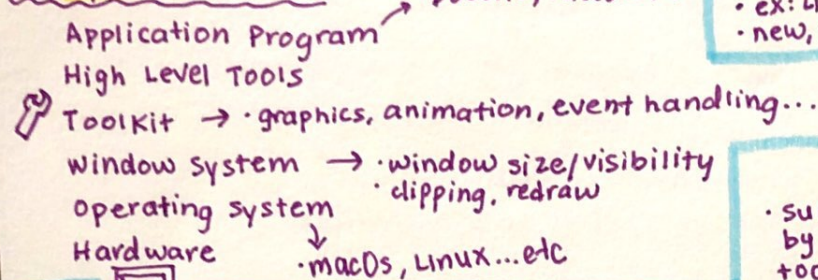 Application Program
High Level Tools
Toolkit → · graphics, animation, event handling...
window system → · window size/visibility
· clipping, redraw
operating system
Hardware
· macOs, Linux...etc
· ex:
· new,
· su
by
too